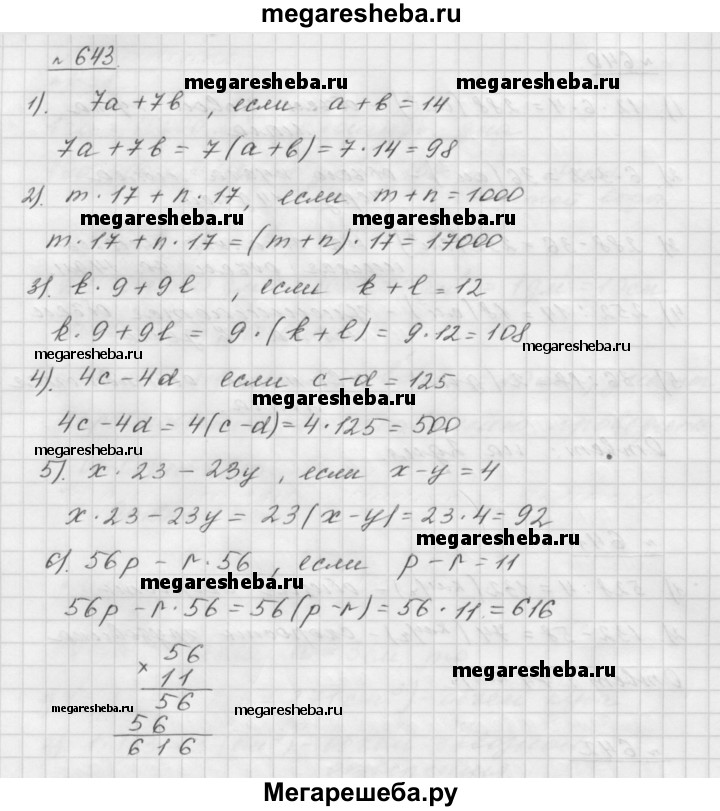 megaresheba.ru
№ 643.
megaresheba.ru megaresheba.ru
1). 7a + 7b , если a + b = 14
7a + 7b = 7(a + b) = 7 · 14 = 98
2). m · 17 + n · 17, если m + n = 1000
megaresheba.ru megaresheba.ru
m · 17 + n · 17 = (m + n) · 17 = 17000
3). k · 9 + 9l , если k + l = 12
k · 9 + 9l = 9 · (k + l) = 9 · 12 = 108
megaresheba.ru megaresheba.ru
4). 4c - 4d если c - d = 125
megaresheba.ru
4c - 4d = 4(c - d) = 4 · 125 = 500
megaresheba.ru
5). x · 23 - 23y , если x - y = 4
x · 23 - 23y = 23(x - y) = 23 · 4 = 92
megaresheba.ru
6). 56p - r · 56 , если p - r = 11
megaresheba.ru
56p - r · 56 = 56(p - r) = 56 · 11 = 616
× 56
11
megaresheba.ru
56
megaresheba.ru megaresheba.ru
56
616
Мегарешеба.ру